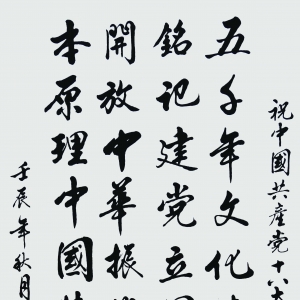 祝中國共産党十八大
五千年文化
銘記建党立
開放中華振
本原理中國
壬辰年秋月